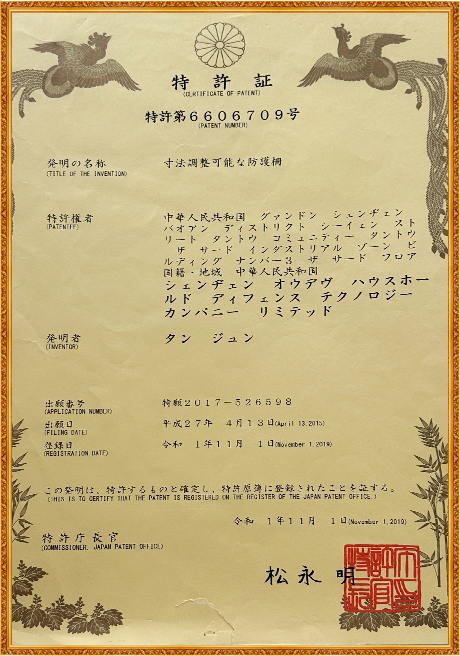 特許証
(CERTIFICATE OF PATENT)
特許第6606709号
(PATENT NUMBER)
発明の名称 寸法調整可能な防護柵
(TITLE OF THE INVENTION)
特許権者 中華人民共和国 グァンドン シェンヂェン
(PATENTEE) バオアン ディストリクト シーイェン スト
リート タントウ コミュニティー タントウ
ザ サード インダストリアル ゾーン ビ
ルディング ナンバー3 ザ サード フロア
国籍・地域 中華人民共和国
シェンヂェン オウデヴ ハウスホー
ルド ディフェンス テクノロジー
カンパニー リミテッド
発明者 タン ジュン
(INVENTOR)
出願番号 特願2017-526598
(APPLICATION NUMBER)
出願日 平成27年 4月13日(April 13,2015)
(FILING DATE)
登録日 令和 1年11月 1日(November 1,2019)
(REGISTRATION DATE)
この発明は、特許するものと確定し、特許原簿に登録されたことを証する。
(THIS IS TO CERTIFY THAT THE PATENT IS REGISTERED ON THE REGISTER OF THE JAPAN PATENT OFFICE.)
令和 1年11月 1日(November 1,2019)
特許庁長官
(COMMISSIONER, JAPAN PATENT OFFICE)
松永明